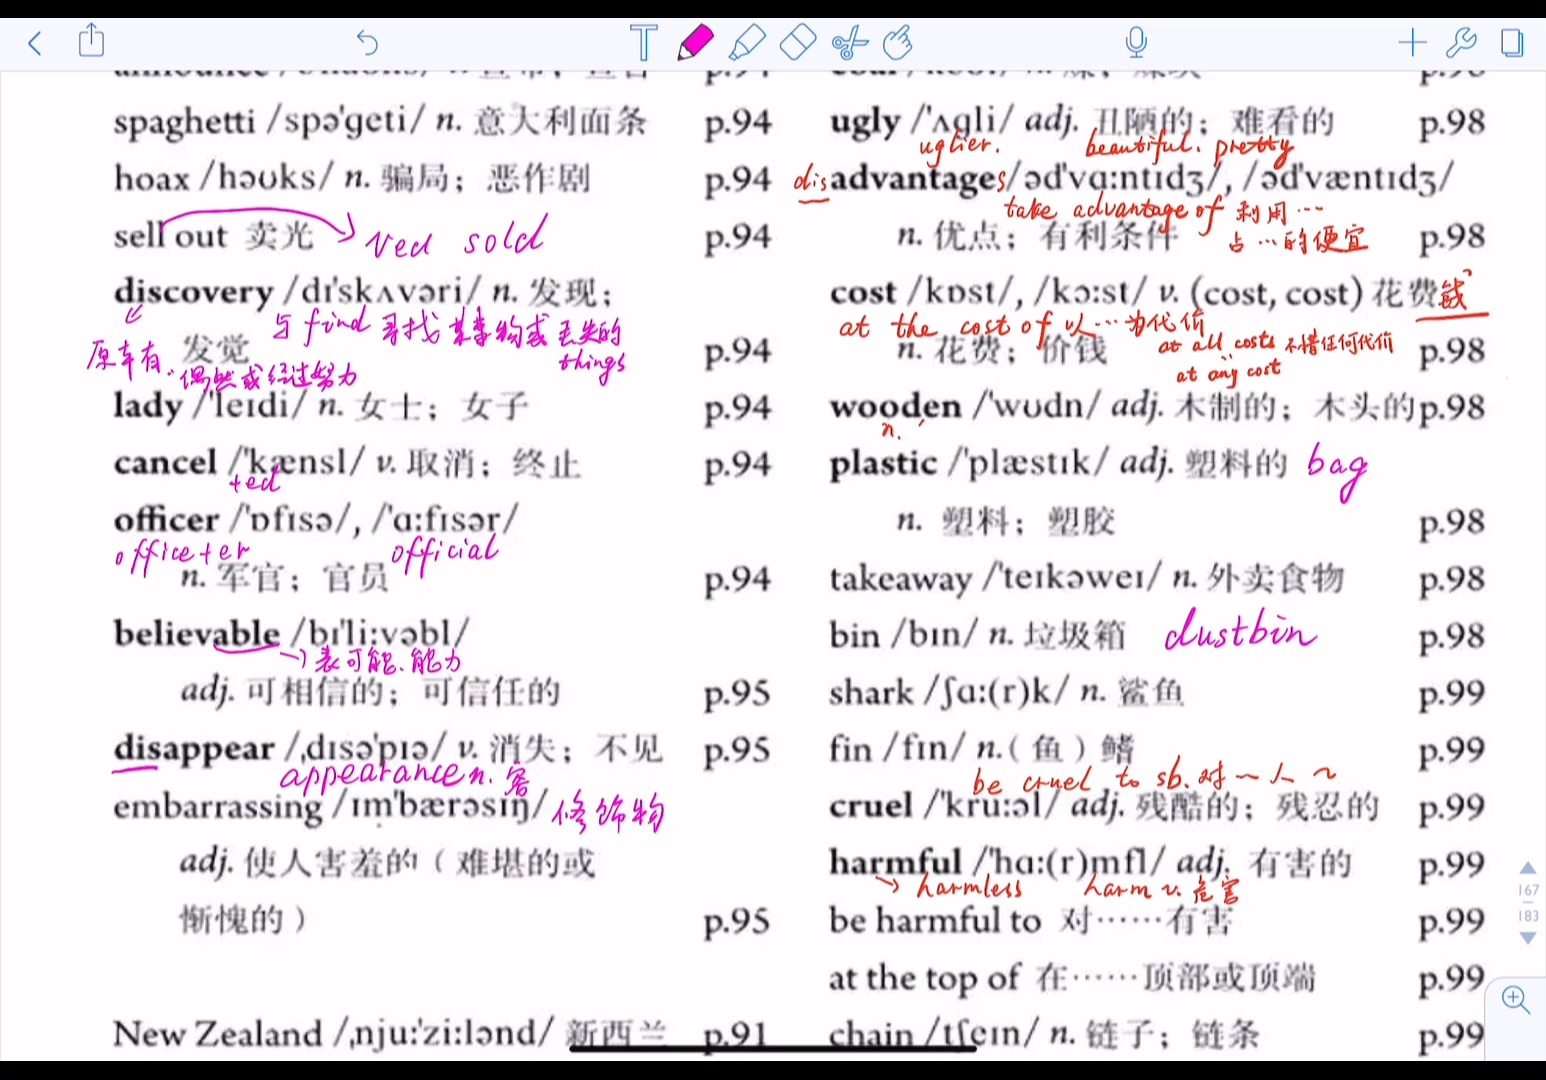 spaghetti /spə'geti/ n. 意大利面条 p.94
hoax /həʊks/ n. 骗局；恶作剧 p.94
sell out 卖光 p.94
Ved sold
discovery /dɪ'skʌvəri/ n. 发现；
与 find 寻找某事物或丢失的
things
原本有.
发觉 p.94
偶然或经过努力
lady /'leɪdi/ n. 女士；女子 p.94
cancel /'kænsl/ v. 取消；终止 p.94
+ed
officer /'ɒfɪsə/, /'ɑ:fɪsər/
office+er official
n. 军官；官员 p.94
believable /bɪ'li:vəbl/
→表可能、能力
adj. 可相信的；可信任的 p.95
disappear /ˌdɪsə'pɪə/ v. 消失；不见 p.95
appearance n.
embarrassing /ɪm'bærəsɪŋ/ 修饰物
adj. 使人害羞的（难堪的或
惭愧的） p.95
New Zealand /ˌnju:'zi:lənd/ 新西兰 p.91
ugly /'ʌgli/ adj. 丑陋的；难看的 p.98
uglier. beautiful. pretty
disadvantages /əd'vɑ:ntɪdʒ/, /əd'væntɪdʒ/
take advantage of 利用…
占…的便宜
n. 优点；有利条件 p.98
cost /kɒst/, /kɔ:st/ v. (cost, cost) 花费
at the cost of 以…为代价
n. 花费；价钱 p.98
at all costs 不惜任何代价
at any cost
wooden /'wʊdn/ adj. 木制的；木头的 p.98
n.
plastic /'plæstɪk/ adj. 塑料的 bag
n. 塑料；塑胶 p.98
takeaway /'teɪkəweɪ/ n. 外卖食物 p.98
bin /bɪn/ n. 垃圾箱 dustbin p.98
shark /ʃɑ:(r)k/ n. 鲨鱼 p.99
fin /fɪn/ n.（鱼）鳍 p.99
be cruel to sb. 对～人～
cruel /'kru:əl/ adj. 残酷的；残忍的 p.99
harmful /'hɑ:(r)mfl/ adj. 有害的 p.99
→ harmless harm v. 危害
be harmful to 对……有害 p.99
at the top of 在……顶部或顶端 p.99
chain /tʃeɪn/ n. 链子；链条 p.99
167
183